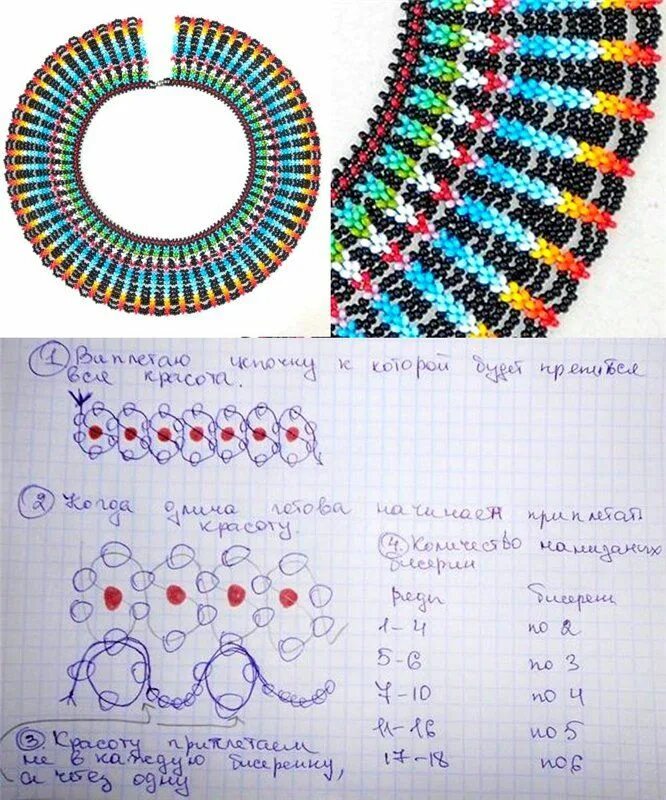 ① Выплетаю цепочку к которой будет крепиться
вся красота.
② Когда длина готова начинаем приплетать
красоту.
④ Количество нанизаных
бисерин
Ряды бисерен
1-4 по 2
5-6 по 3
7-10 по 4
11-16 по 5
17-18 по 6
③ Красоту приплетаем
не в каждую бисеринку,
а через одну